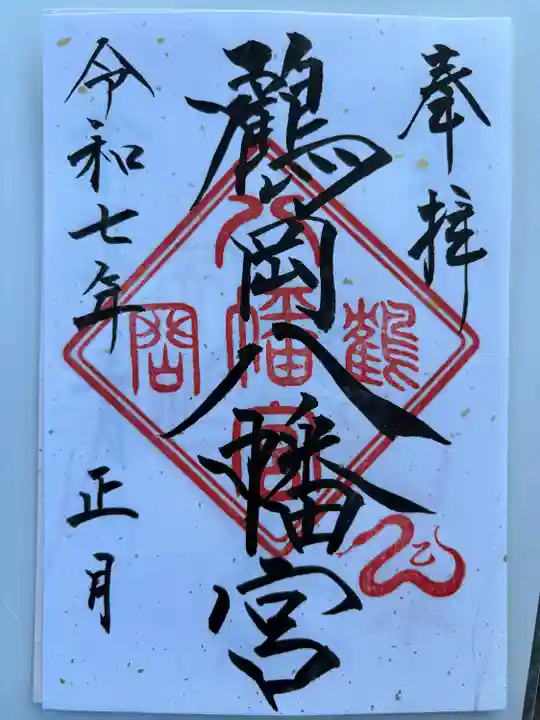 奉拝
鶴岡八幡宮
令和七年 正月
鶴
八幡宮
岡
巳